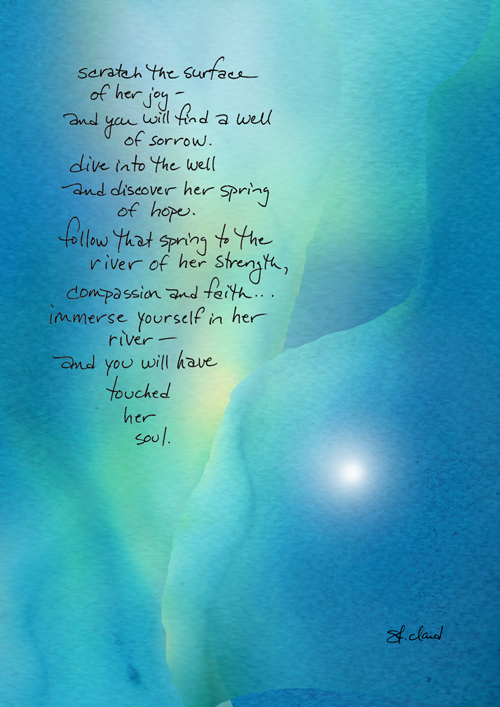 scratch the surface
of her joy –
and you will find a well
of sorrow.
dive into the well
and discover her spring
of hope.
follow that spring to the
river of her strength,
compassion and faith...
immerse yourself in her
river –
and you will have
touched
her
soul.